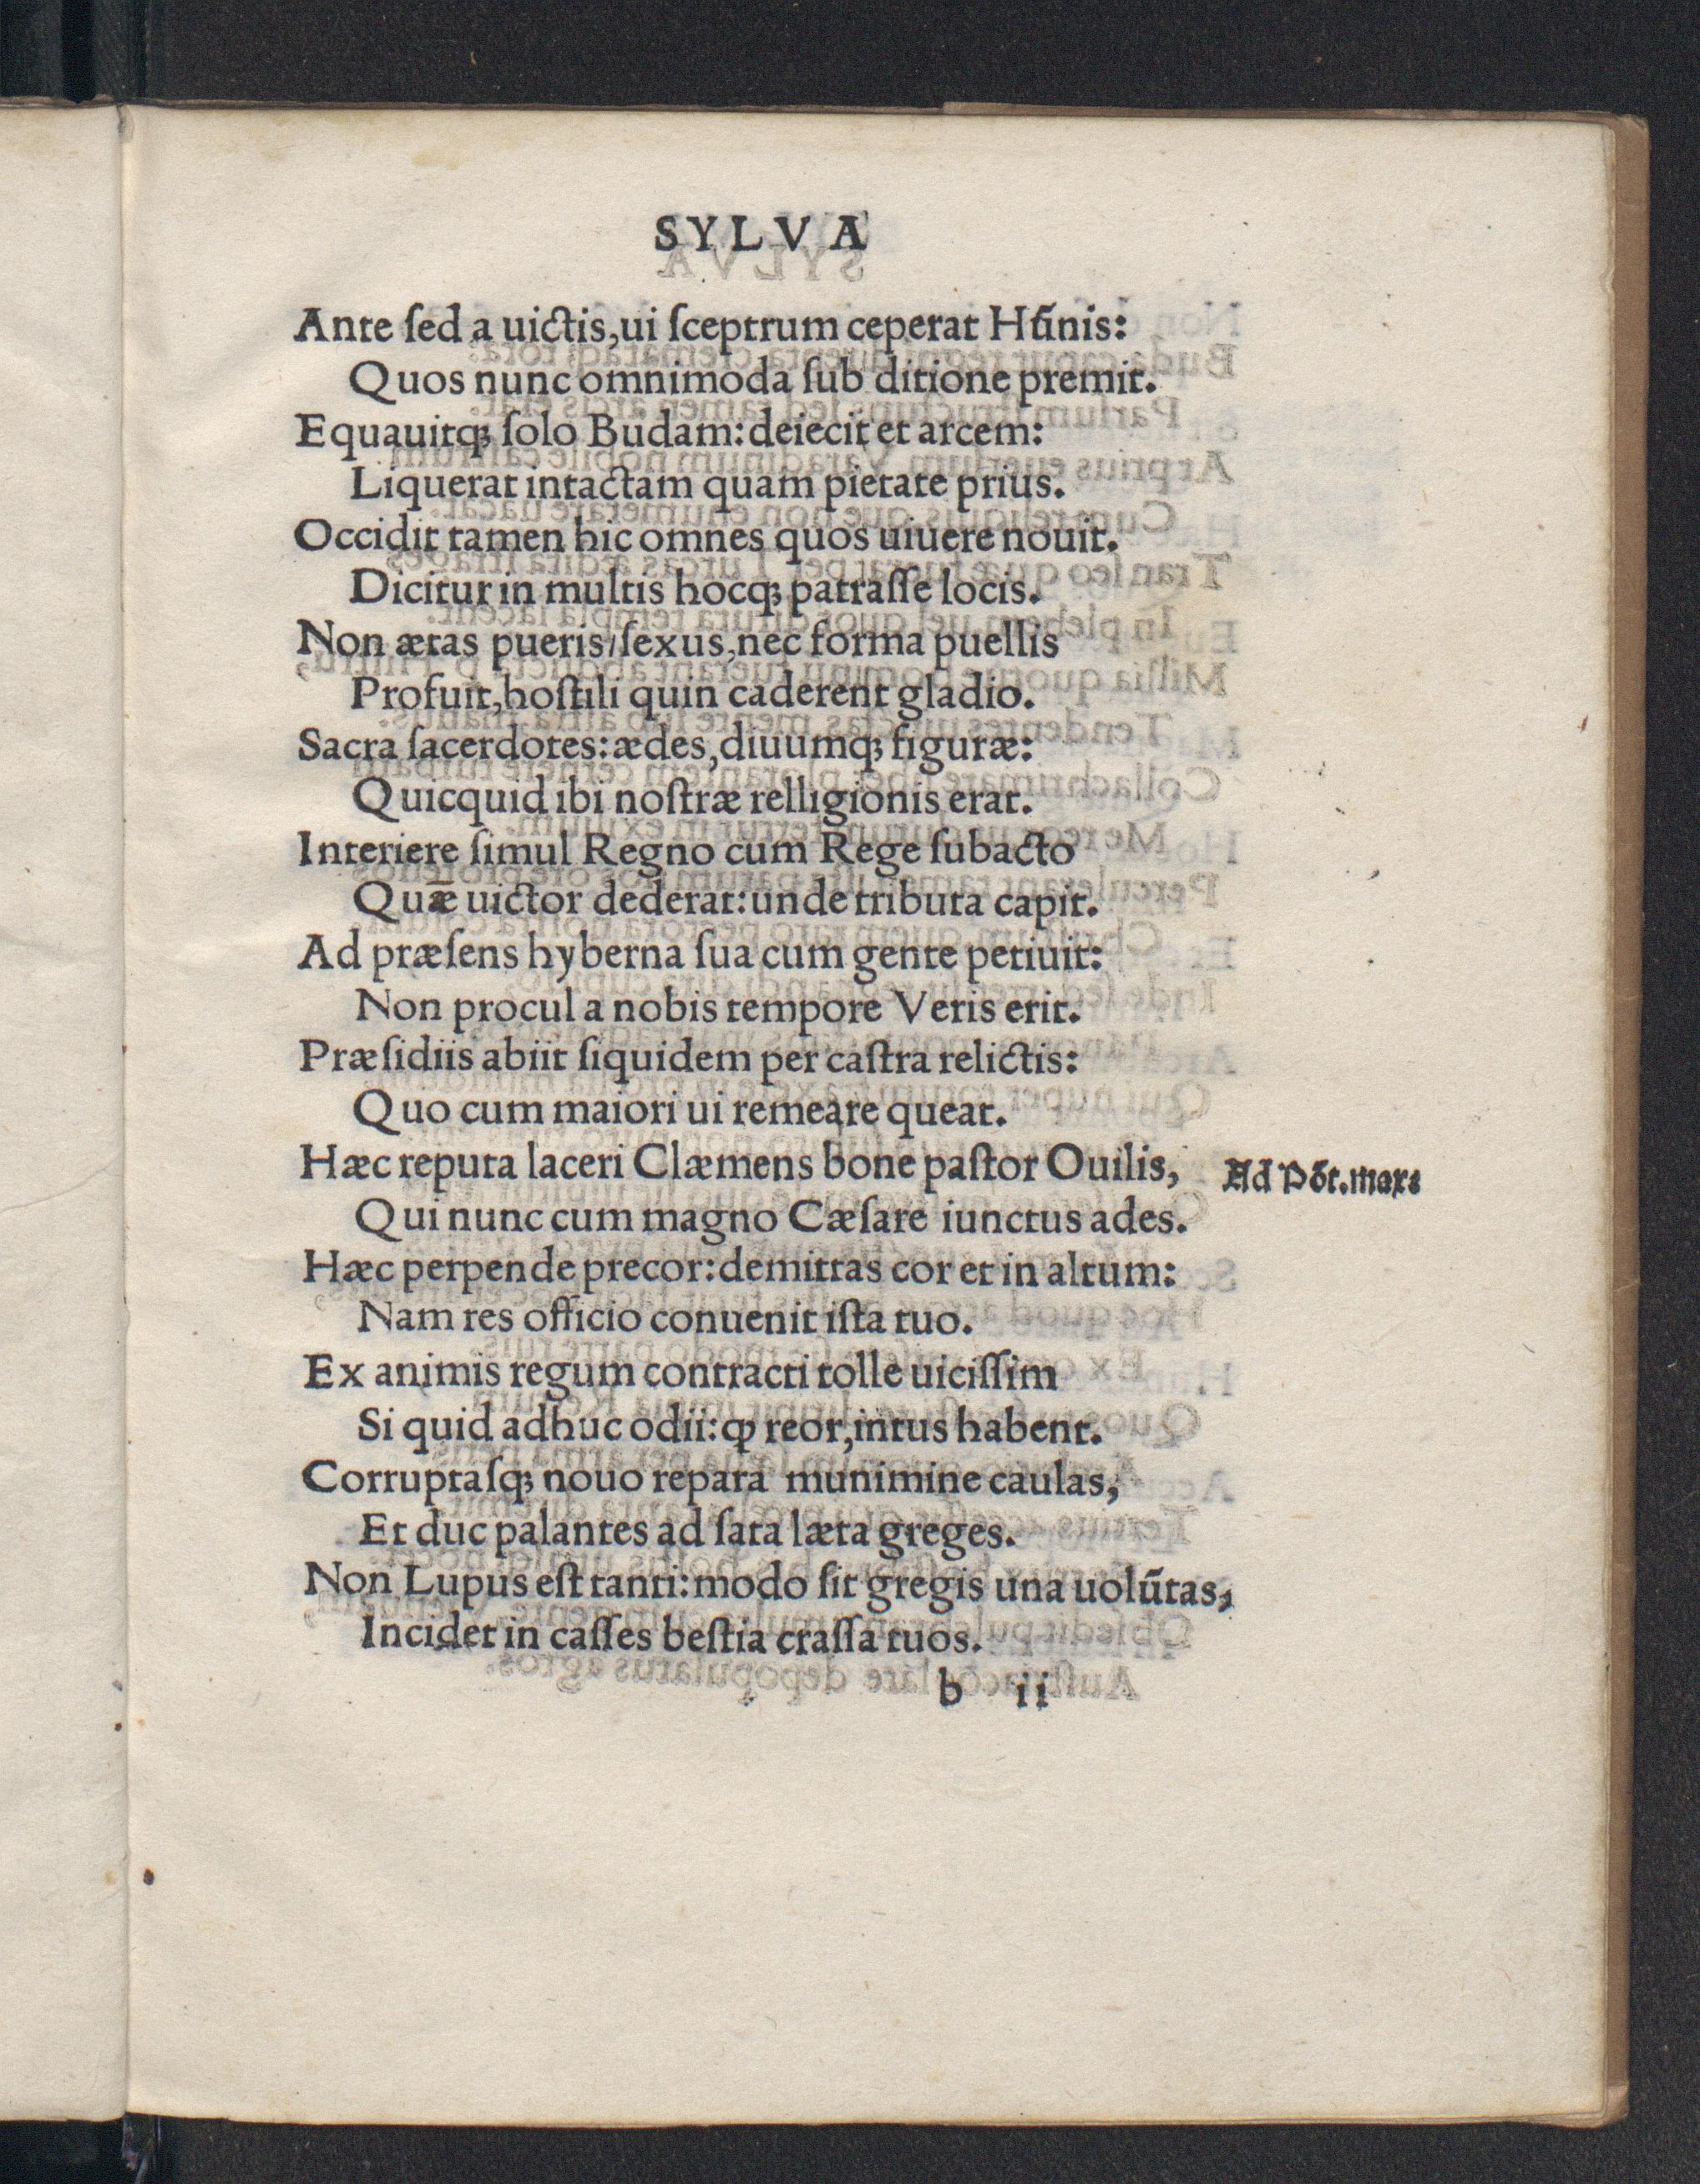 SYLVA
Ante ſed a uictis,ui ſceptrum ceperat Hūnis:
Quos nunc omnimoda ſub ditione premit.
Equauitqꝫ ſolo Budam:deiecit et arcem:
Liquerat intactam quam pietate prius.
Occidit tamen hic omnes quos uiuere nouit.
Dicitur in multis hocqꝫ patraſſe locis.
Non ætas pueris/ſexus,nec forma puellis
Profuit,hoſtili quin caderent gladio.
Sacra ſacerdotes:ædes,diuumqꝫ figuræ:
Quicquid ibi noſtræ relligionis erat.
Interiere ſimul Regno cum Rege ſubacto
Quǣ uictor dederat:unde tributa capit.
Ad præſens hyberna ſua cum gente petiuit:
Non procul a nobis tempore Veris erit.
Præſidiis abiit ſiquidem per caſtra relictis:
Quo cum maiori ui remeare queat.
Hæc reputa laceri Clæmens bone paſtor Ouilis,
Ad Pōt.max:
Qui nunc cum magno Cæſare iunctus ades.
Hæc perpende precor:demittas cor et in altum:
Nam res officio conuenit iſta tuo.
Ex animis regum contracti tolle uiciſſim
Si quid adhuc odii:ꝙ reor,intus habent.
Corruptaſqꝫ nouo repara munimine caulas,
Et duc palantes ad ſata læta greges.
Non Lupus eſt tanti:modo ſit gregis una uolūtas,
Incidet in caſſes beſtia craſſa tuos.
b ii